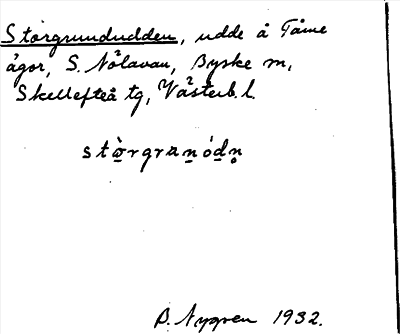 Storgrundudden, udde å Tåme
ägor, S. Nölavan, Byske m,
Skellefteå tg, Västerb. l.
stòrgranódn
B. Nygren 1932.